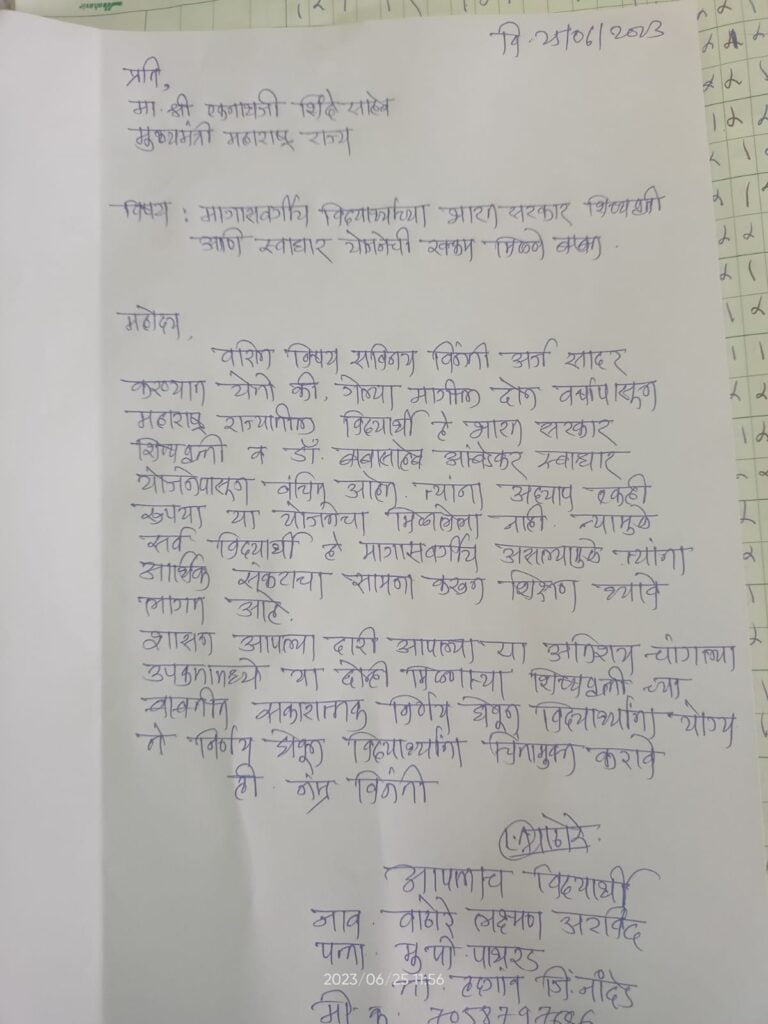 दि. 25/06/2023
प्रति,
मा. श्री एकनाथजी शिंदे साहेब
मुख्यमंत्री महाराष्ट्र राज्य
विषय : मागासवर्गीय विद्यार्थ्याच्या भारत सरकार शिष्यवृत्ती
आणि स्वाधार योजनेची रक्कम मिळणे बाबत .
महोदय,
वरिल विषय सविनय विनंती अर्ज सादर
करण्यात येतो की, गेल्या मागील दोन वर्षापासून
महाराष्ट्र राज्यातील विद्यार्थी हे भारत सरकार
शिष्यवृत्ती व डॉ. बाबासाहेब आंबेडकर स्वाधार
योजनेपासून वंचित आहेत. त्यांना अद्याप एकही
रुपया या योजनेचा मिळालेला नाही. त्यामुळे
सर्व विद्यार्थी हे मागासवर्गीय असल्यामुळे त्यांना
आर्थिक संकटाचा सामना करून शिक्षण घ्यावे
लागत आहे.
शासन आपल्या दारी आपल्या या अतिशय चांगल्या
उपक्रमामध्ये या दोन्ही मिळणाऱ्या शिष्यवृत्ती च्या
बाबतीत सकारात्मक निर्णय घेवून विद्यार्थ्यांना योग्य
तो निर्णय घेवून विद्यार्थ्यांना चिंतामुक्त करावे
ही नम्र विनंती
आपलाच विद्यार्थी
नाव . वाठोरे लक्ष्मण अरविंद
पत्ता . मु. पो. पाथरड
ता. हदगांव जि. नांदेड
2023/06/25 11:56
मो. क्र. 7058797686